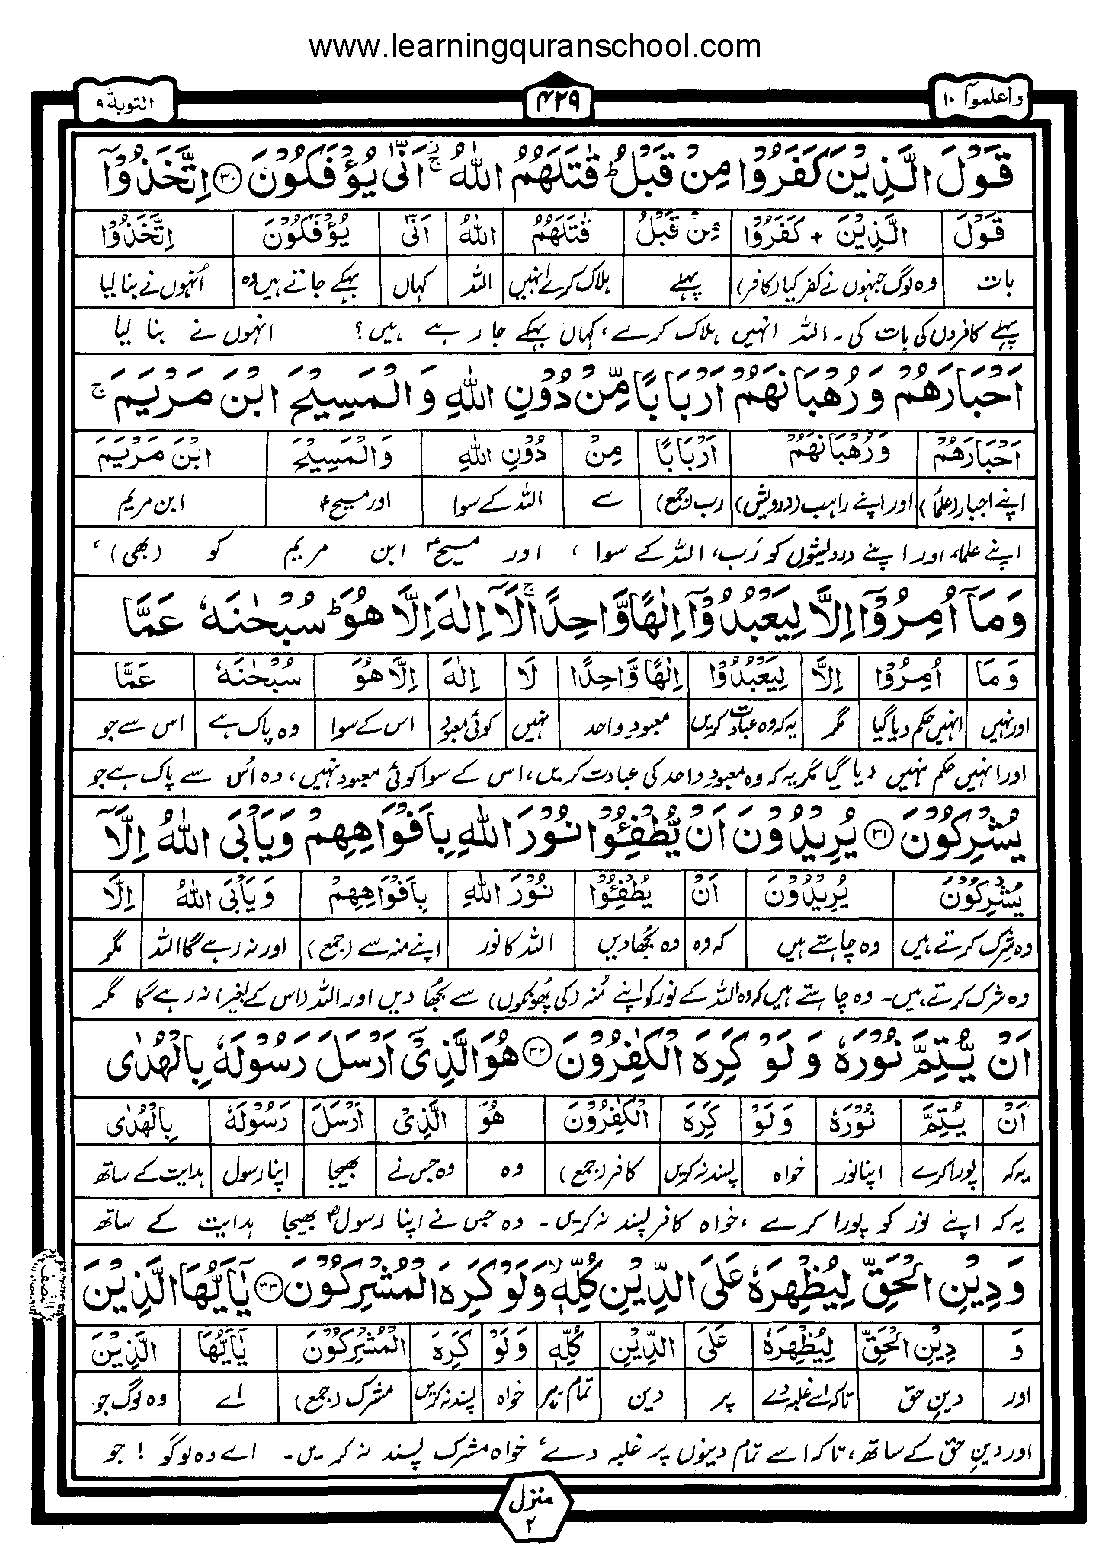 www.learningquranschool.com
واعلموآ ۱۰
۴۲۹
التوبة ۹
قَوْلَ الَّذِيْنَ كَفَرُوْا مِنْ قَبْلُ ؕ قٰتَلَهُمُ اللّٰهُ ۚ اَنّٰى يُؤْفَكُوْنَ ﴿۳۰﴾ اِتَّخَذُوْۤا
قَوْلَ الَّذِيْنَ + كَفَرُوْا مِنْ قَبْلُ قٰتَلَهُمُ اللّٰهُ اَنّٰى يُؤْفَكُوْنَ اِتَّخَذُوْا
بات وہ لوگ جنہوں نے کفر کیا (کافر) پہلے ہلاک کرے انہیں اللہ کہاں بہکے جاتے ہیں وہ اُنہوں نے بنا لیا
پہلے کافروں کی بات کی۔ اللہ انہیں ہلاک کرے، کہاں بہکے جا رہے ہیں؟ انہوں نے بنا لیا
اَحْبَارَهُمْ وَرُهْبَانَهُمْ اَرْبَابًا مِّنْ دُوْنِ اللّٰهِ وَالْمَسِيْحَ ابْنَ مَرْيَمَ ۚ
اَحْبَارَهُمْ وَرُهْبَانَهُمْ اَرْبَابًا مِنْ دُوْنِ اللّٰهِ وَالْمَسِيْحَ ابْنَ مَرْيَمَ
اپنے احبار (علماء) اور اپنے راہب (درویش) رب (جمع) سے اللہ کے سوا اور مسیحؑ ابن مریم
اپنے علماء اور اپنے درویشوں کو رَب، اللہ کے سوا، اور مسیحؑ ابن مریم کو (بھی)،
وَمَاۤ اُمِرُوْۤا اِلَّا لِيَعْبُدُوْۤا اِلٰهًا وَّاحِدًا ۚ لَاۤ اِلٰهَ اِلَّا هُوَ ؕ سُبْحٰنَهٗ عَمَّا
وَمَا اُمِرُوْا اِلَّا لِيَعْبُدُوْا اِلٰهًا وَّاحِدًا لَا اِلٰهَ اِلَّا هُوَ سُبْحٰنَهٗ عَمَّا
اور نہیں انہیں حکم دیا گیا مگر یہ کہ وہ عبادت کریں معبودِ واحد نہیں کوئی معبود اس کے سوا وہ پاک ہے اس سے جو
اور انہیں حکم نہیں دیا گیا مگر یہ کہ وہ معبودِ واحد کی عبادت کریں، اس کے سوا کوئی معبود نہیں، وہ اُس سے پاک ہے جو
يُشْرِكُوْنَ ﴿۳۱﴾ يُرِيْدُوْنَ اَنْ يُّطْفِئُوْا نُوْرَ اللّٰهِ بِاَفْوَاهِهِمْ وَيَاْبَى اللّٰهُ اِلَّاۤ
يُشْرِكُوْنَ يُرِيْدُوْنَ اَنْ يُطْفِئُوْا نُوْرَ اللّٰهِ بِاَفْوَاهِهِمْ وَيَاْبَى اللّٰهُ اِلَّا
وہ شرک کرتے ہیں وہ چاہتے ہیں کہ وہ وہ بجھا دیں اللہ کا نور اپنے منہ سے (جمع) اور نہ رہے گا اللہ مگر
وہ شرک کرتے ہیں۔ وہ چاہتے ہیں کہ وہ اللہ کے نور کو اپنے مُنہ (کی پھونکوں) سے بجھا دیں اور اللہ (اس کے بغیر) نہ رہے گا مگر
اَنْ يُّتِمَّ نُوْرَهٗ وَلَوْ كَرِهَ الْكٰفِرُوْنَ ﴿۳۲﴾ هُوَ الَّذِيْۤ اَرْسَلَ رَسُوْلَهٗ بِالْهُدٰى
اَنْ يُّتِمَّ نُوْرَهٗ وَلَوْ كَرِهَ الْكٰفِرُوْنَ هُوَ الَّذِيْ اَرْسَلَ رَسُوْلَهٗ بِالْهُدٰى
یہ کہ پورا کرے اپنا نور خواہ پسند نہ کریں کافر (جمع) وہ وہ جس نے بھیجا اپنا رسول ہدایت کے ساتھ
یہ کہ اپنے نور کو پورا کرے، خواہ کافر پسند نہ کریں۔ وہ جس نے اپنا رسولؐ بھیجا ہدایت کے ساتھ
وَدِيْنِ الْحَقِّ لِيُظْهِرَهٗ عَلَى الدِّيْنِ كُلِّهٖ ۙ وَلَوْ كَرِهَ الْمُشْرِكُوْنَ ﴿۳۳﴾ يٰۤاَيُّهَا الَّذِيْنَ
وَ دِيْنِ الْحَقِّ لِيُظْهِرَهٗ عَلَى الدِّيْنِ كُلِّهٖ وَلَوْ كَرِهَ الْمُشْرِكُوْنَ يٰاَيُّهَا الَّذِيْنَ
اور دینِ حق تاکہ اسے غلبہ دے پر دین تمام پر خواہ پسند نہ کریں مشرک (جمع) اے وہ لوگ جو
اور دینِ حق کے ساتھ، تاکہ اسے تمام دینوں پر غلبہ دے، خواہ مشرک پسند نہ کریں۔ اے وہ لوگو! جو
منزل ۲